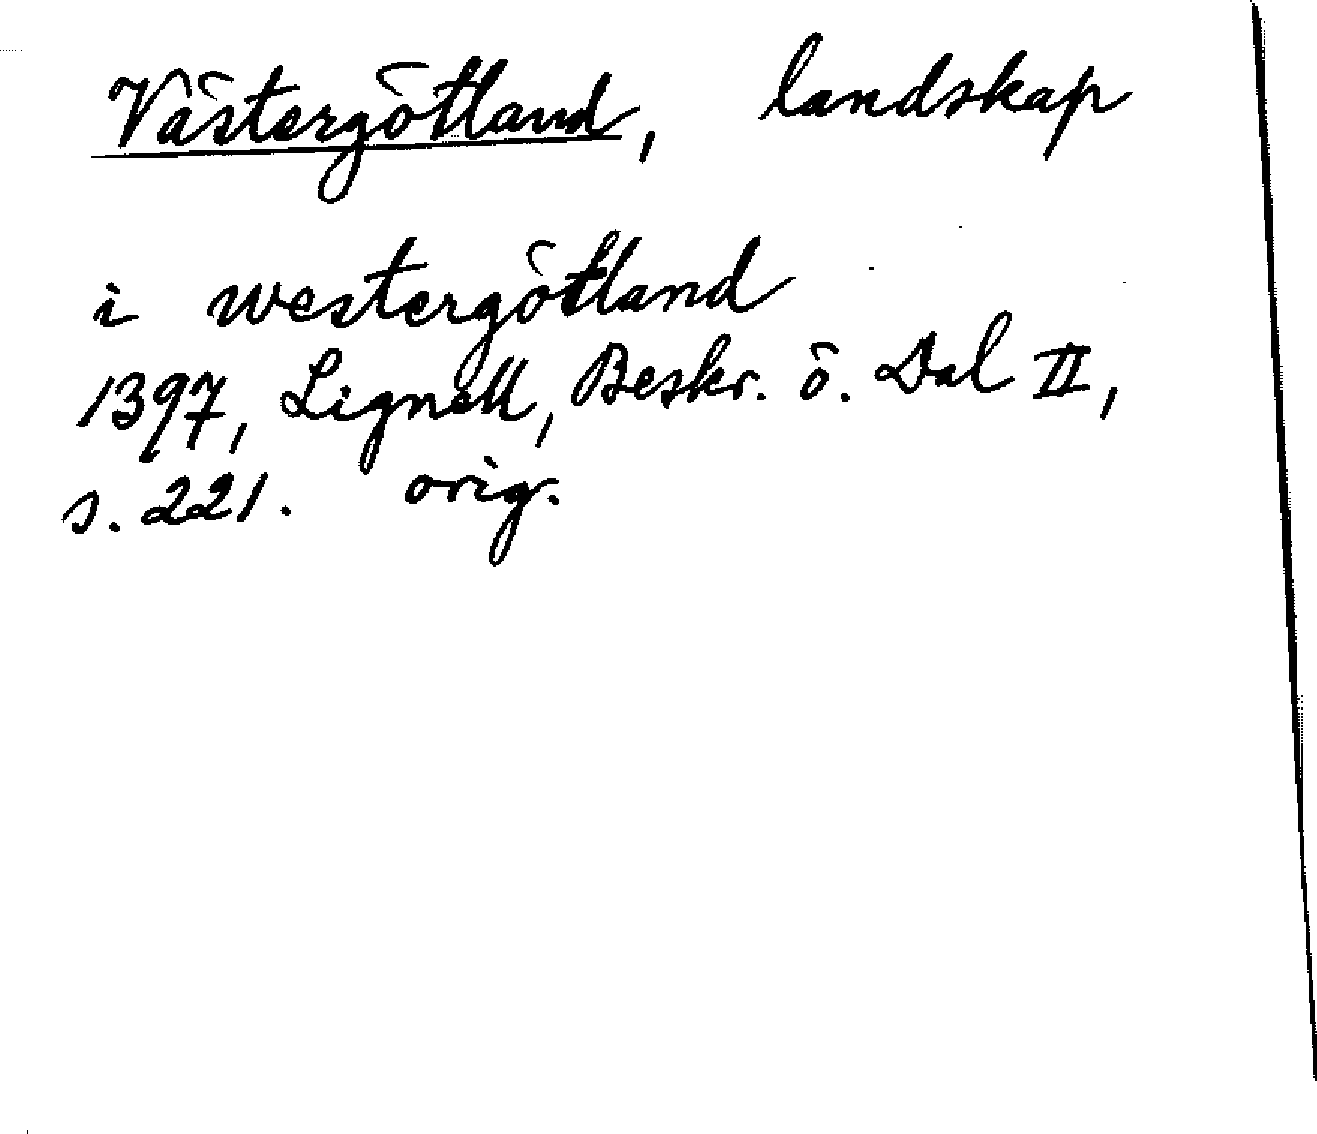 Västergötland, landskap
i westergötland
1397, Lignell, Beskr. ö. Dal II,
s. 221. orig.